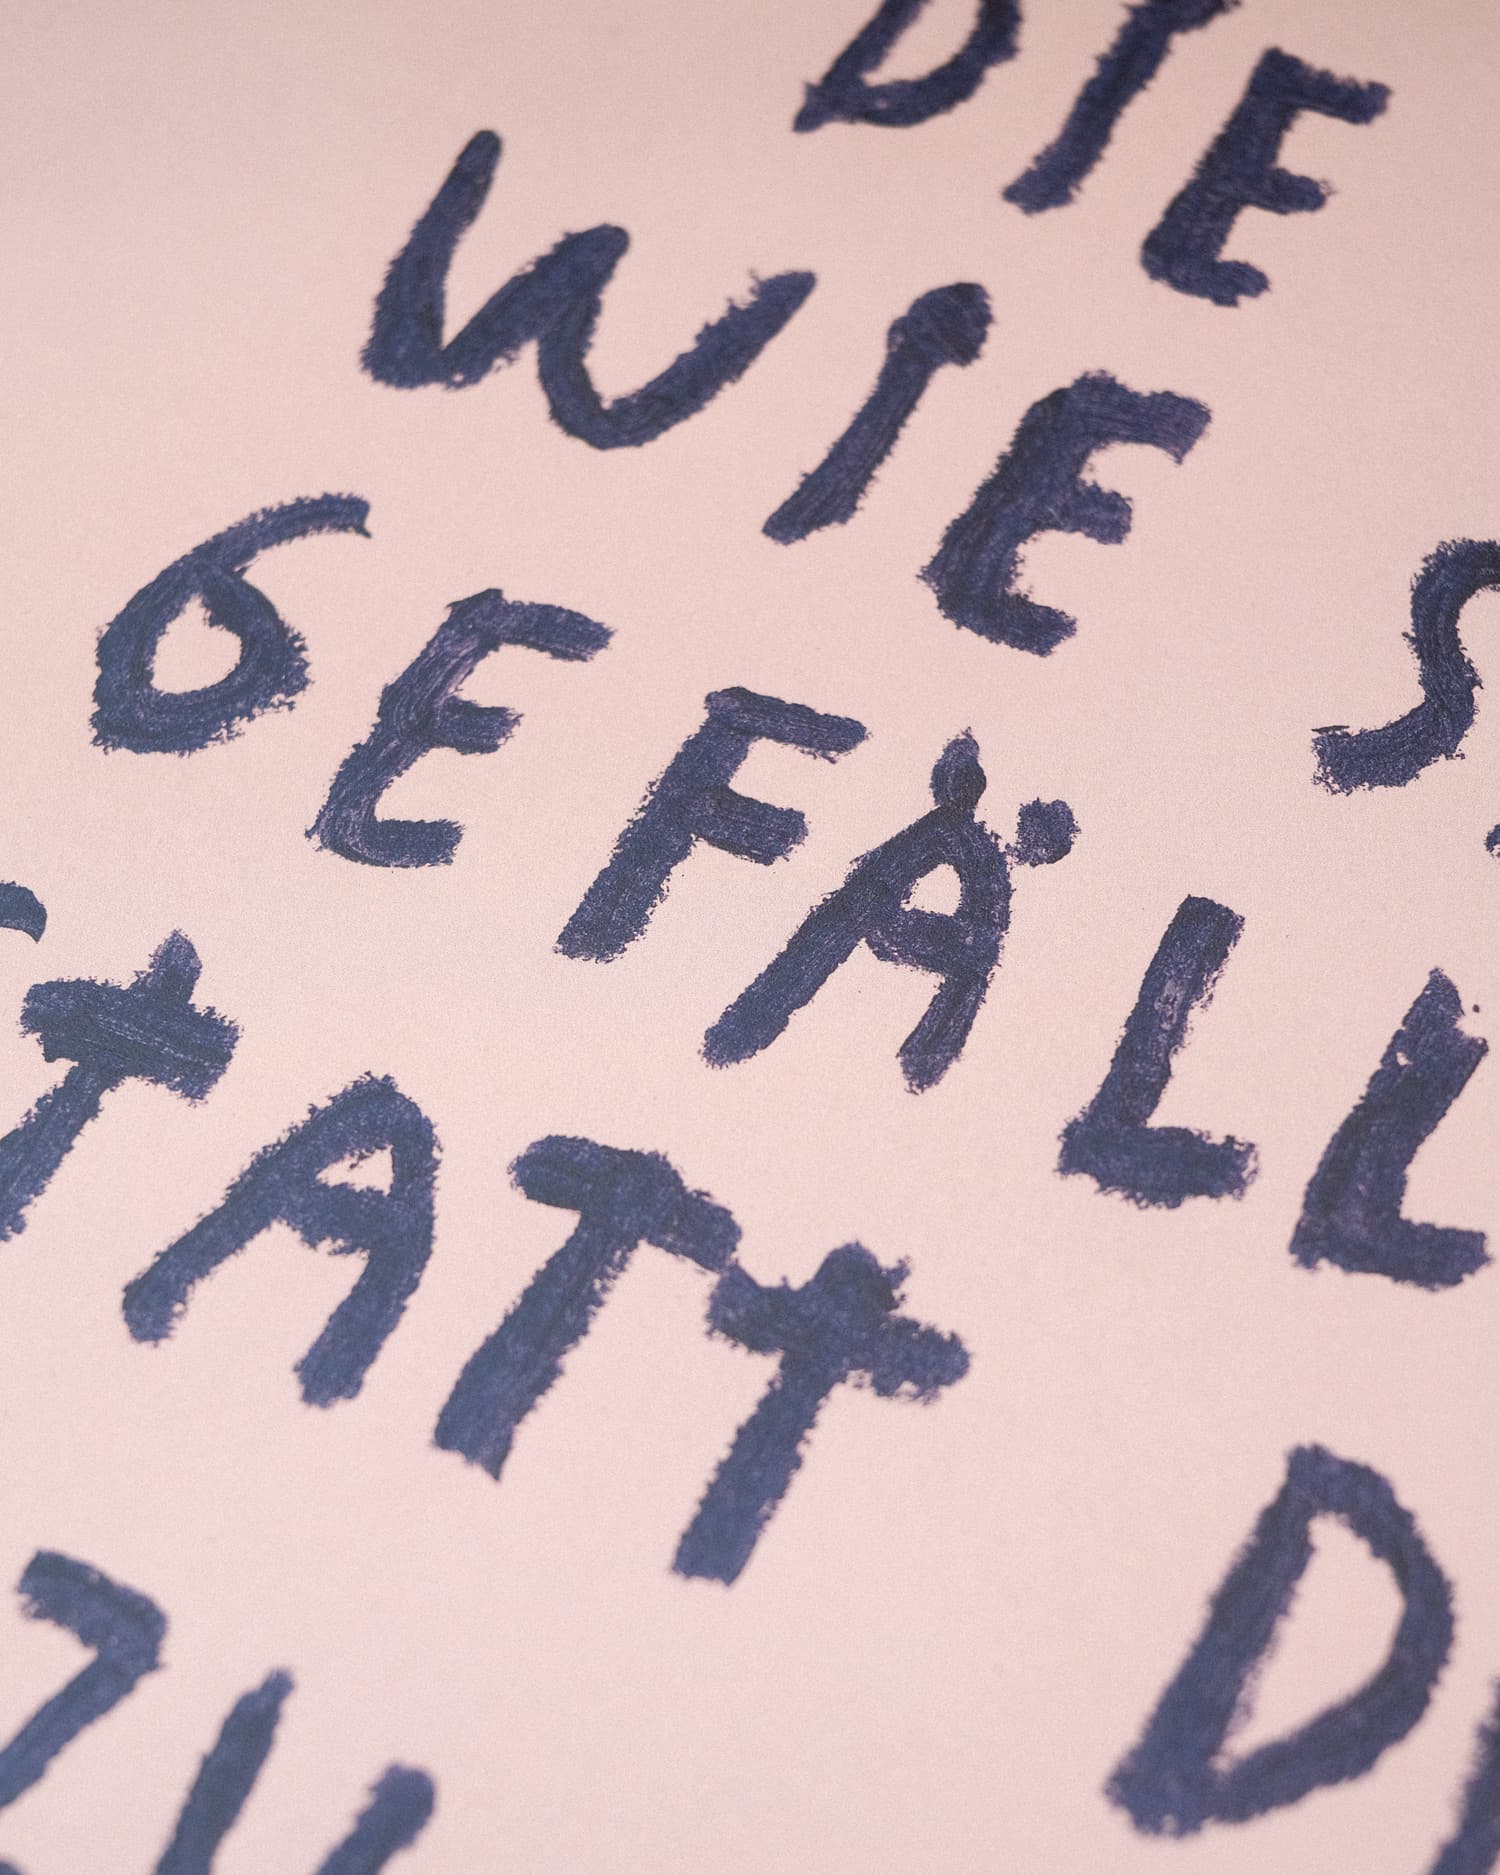 DIE
WIE
GEFÄLL
STATT
ZU